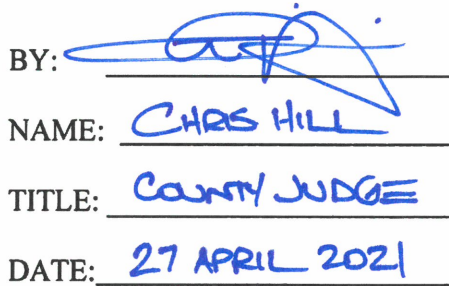 BY:
NAME: CHRIS HILL
TITLE: COUNTY JUDGE
DATE: 27 APRIL 2021